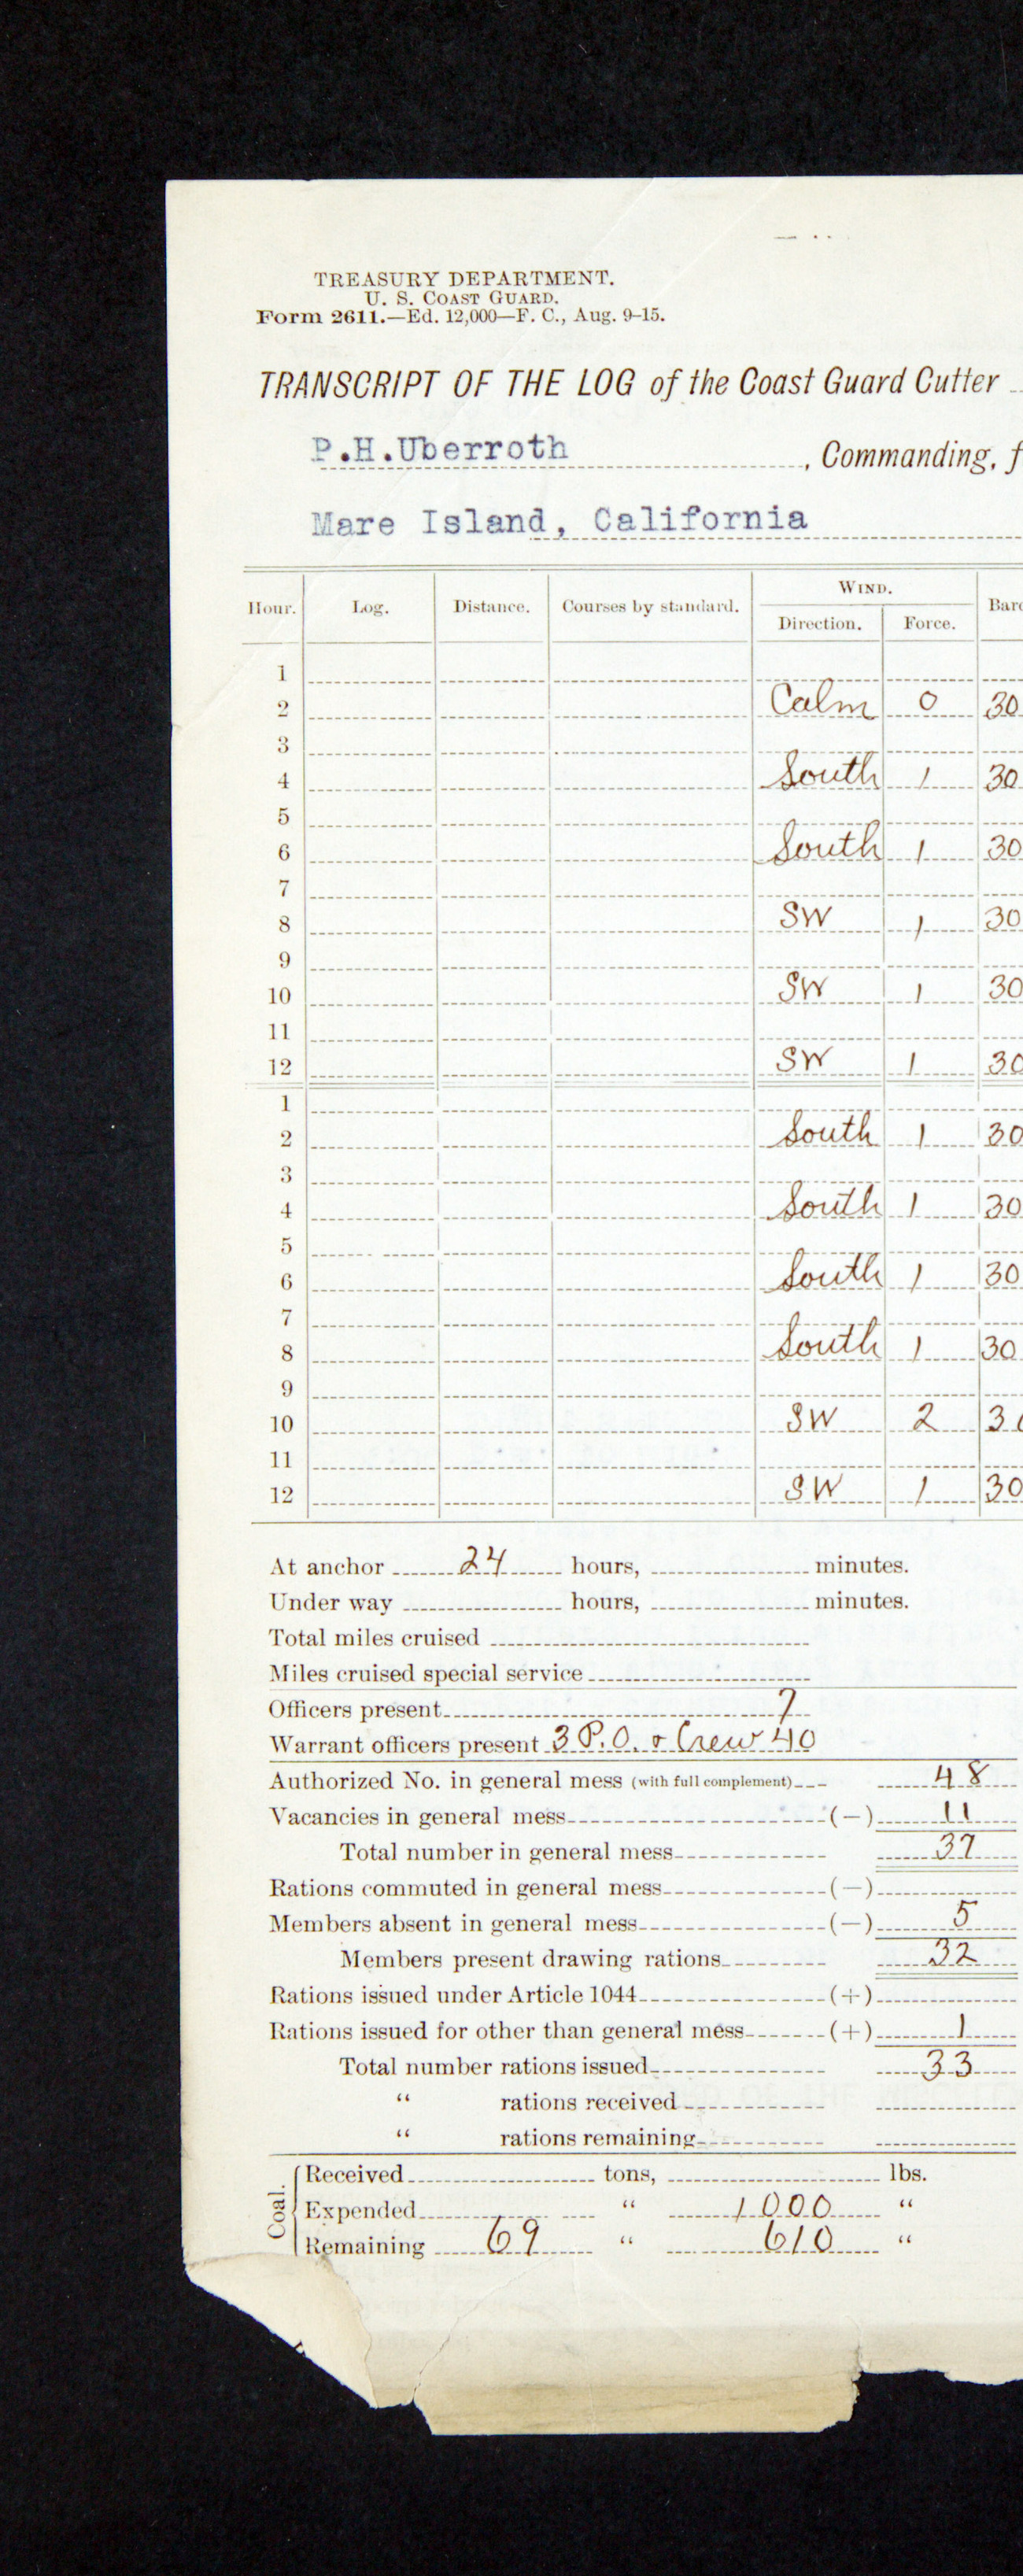 TREASURY DEPARTMENT.
U. S. COAST GUARD.
Form 2611.—Ed. 12,000—F. C., Aug. 9–15.
TRANSCRIPT OF THE LOG of the Coast Guard Cutter
P.H.Uberroth , Commanding, f
Mare Island, California
WIND.
Hour. Log. Distance. Courses by standard. Direction. Force. Baro
1
2 Calm 0 30
3
4 South 1 30
5
6 South 1 30
7
8 SW 1 30
9
10 SW 1 30
11
12 SW 1 30
1
2 South 1 30
3
4 South 1 30
5
6 South 1 30
7
8 South 1 30
9
10 SW 2 30
11
12 SW 1 30
At anchor 24 hours, minutes.
Under way hours, minutes.
Total miles cruised
Miles cruised special service
Officers present 7
Warrant officers present 3 P.O. & Crew 40
Authorized No. in general mess (with full complement) 48
Vacancies in general mess (—) 11
Total number in general mess 37
Rations commuted in general mess (—)
Members absent in general mess (—) 5
Members present drawing rations 32
Rations issued under Article 1044 (+)
Rations issued for other than general mess (+) 1
Total number rations issued 33
“ rations received
“ rations remaining
Coal.
Received tons, lbs.
Expended “ 1000 “
Remaining 69 “ 610 “